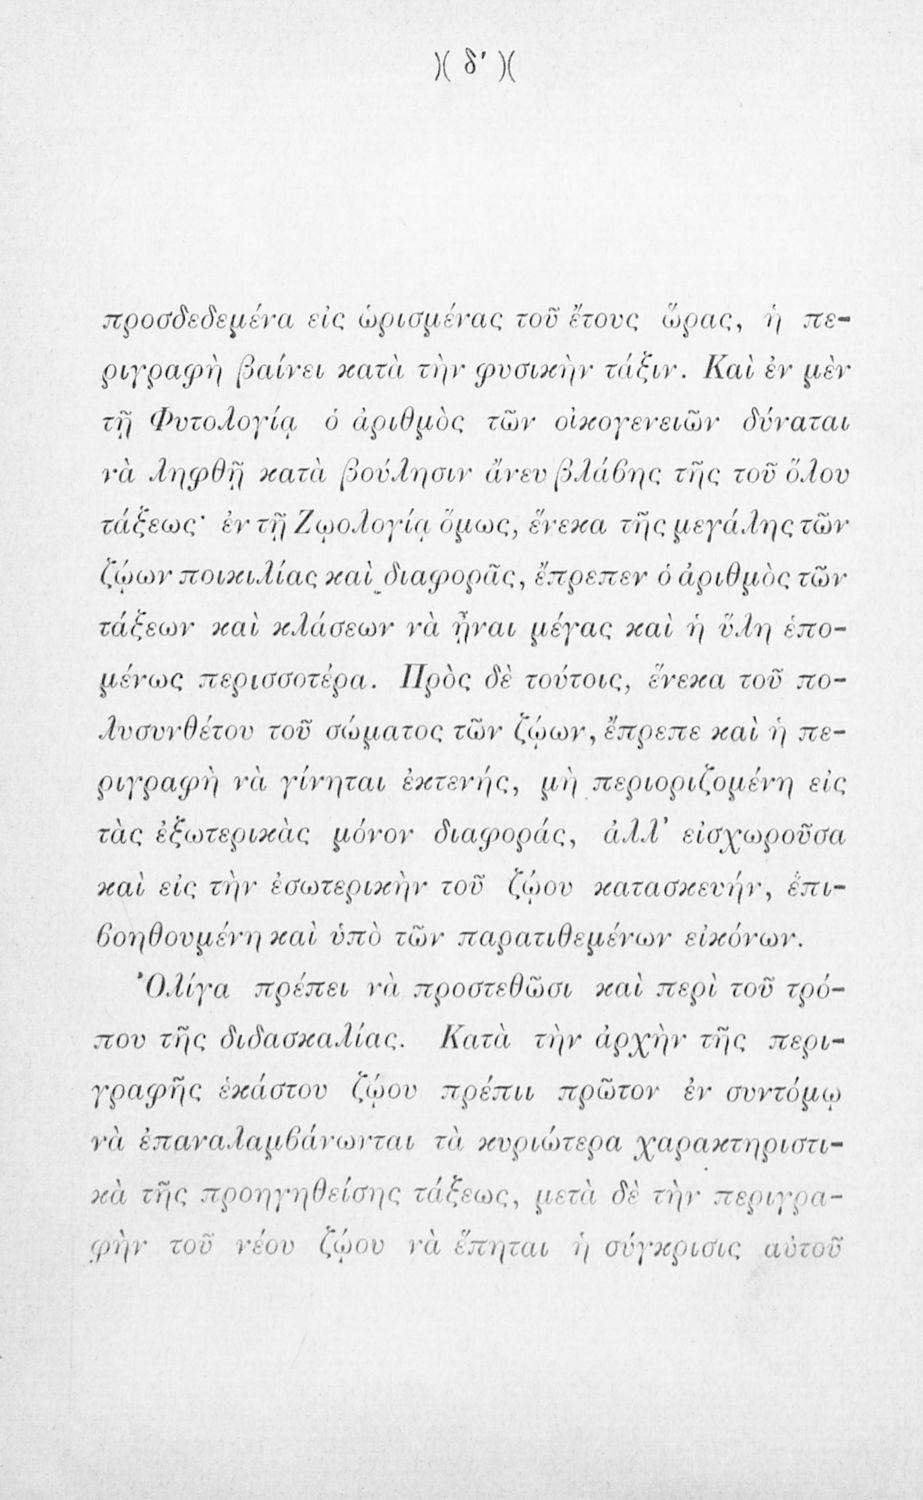 )( δ' )(
προσδεδεμένα εἰς ὡρισμένας τοῦ ἔτους ὥρας, ἡ πε-
ριγραφὴ βαίνει κατὰ τὴν φυσικὴν τάξιν. Καὶ ἐν μὲν
τῇ Φυτολογίᾳ ὁ ἀριθμὸς τῶν οἰκογενειῶν δύναται
νὰ ληφθῇ κατὰ βούλησιν ἄνευ βλάβης τῆς τοῦ ὅλου
τάξεως· ἐν τῇ Ζῳολογίᾳ ὅμως, ἕνεκα τῆς μεγάλης τῶν
ζῴων ποικιλίας καὶ διαφορᾶς, ἔπρεπεν ὁ ἀριθμὸς τῶν
τάξεων καὶ κλάσεων νὰ ᾖναι μέγας καὶ ἡ ὕλη ἑπο-
μένως περισσοτέρα. Πρὸς δὲ τούτοις, ἕνεκα τοῦ πο-
λυσυνθέτου τοῦ σώματος τῶν ζῴων, ἔπρεπε καὶ ἡ πε-
ριγραφὴ νὰ γίνηται ἐκτενής, μὴ περιοριζομένη εἰς
τὰς ἐξωτερικὰς μόνον διαφοράς, ἀλλ' εἰσχωροῦσα
καὶ εἰς τὴν ἐσωτερικὴν τοῦ ζῴου κατασκευήν, ἐπι-
βοηθουμένη καὶ ὑπὸ τῶν παρατιθεμένων εἰκόνων.
Ὀλίγα πρέπει νὰ προστεθῶσι καὶ περὶ τοῦ τρό-
που τῆς διδασκαλίας. Κατὰ τὴν ἀρχὴν τῆς περι-
γραφῆς ἑκάστου ζῴου πρέπιι πρῶτον ἐν συντόμῳ
νὰ ἐπαναλαμβάνωνται τὰ κυριώτερα χαρακτηριστι-
κὰ τῆς προηγηθείσης τάξεως, μετὰ δὲ τὴν περιγρα-
φὴν τοῦ νέου ζῴου νὰ ἕπηται ἡ σύγκρισις αὐτοῦ